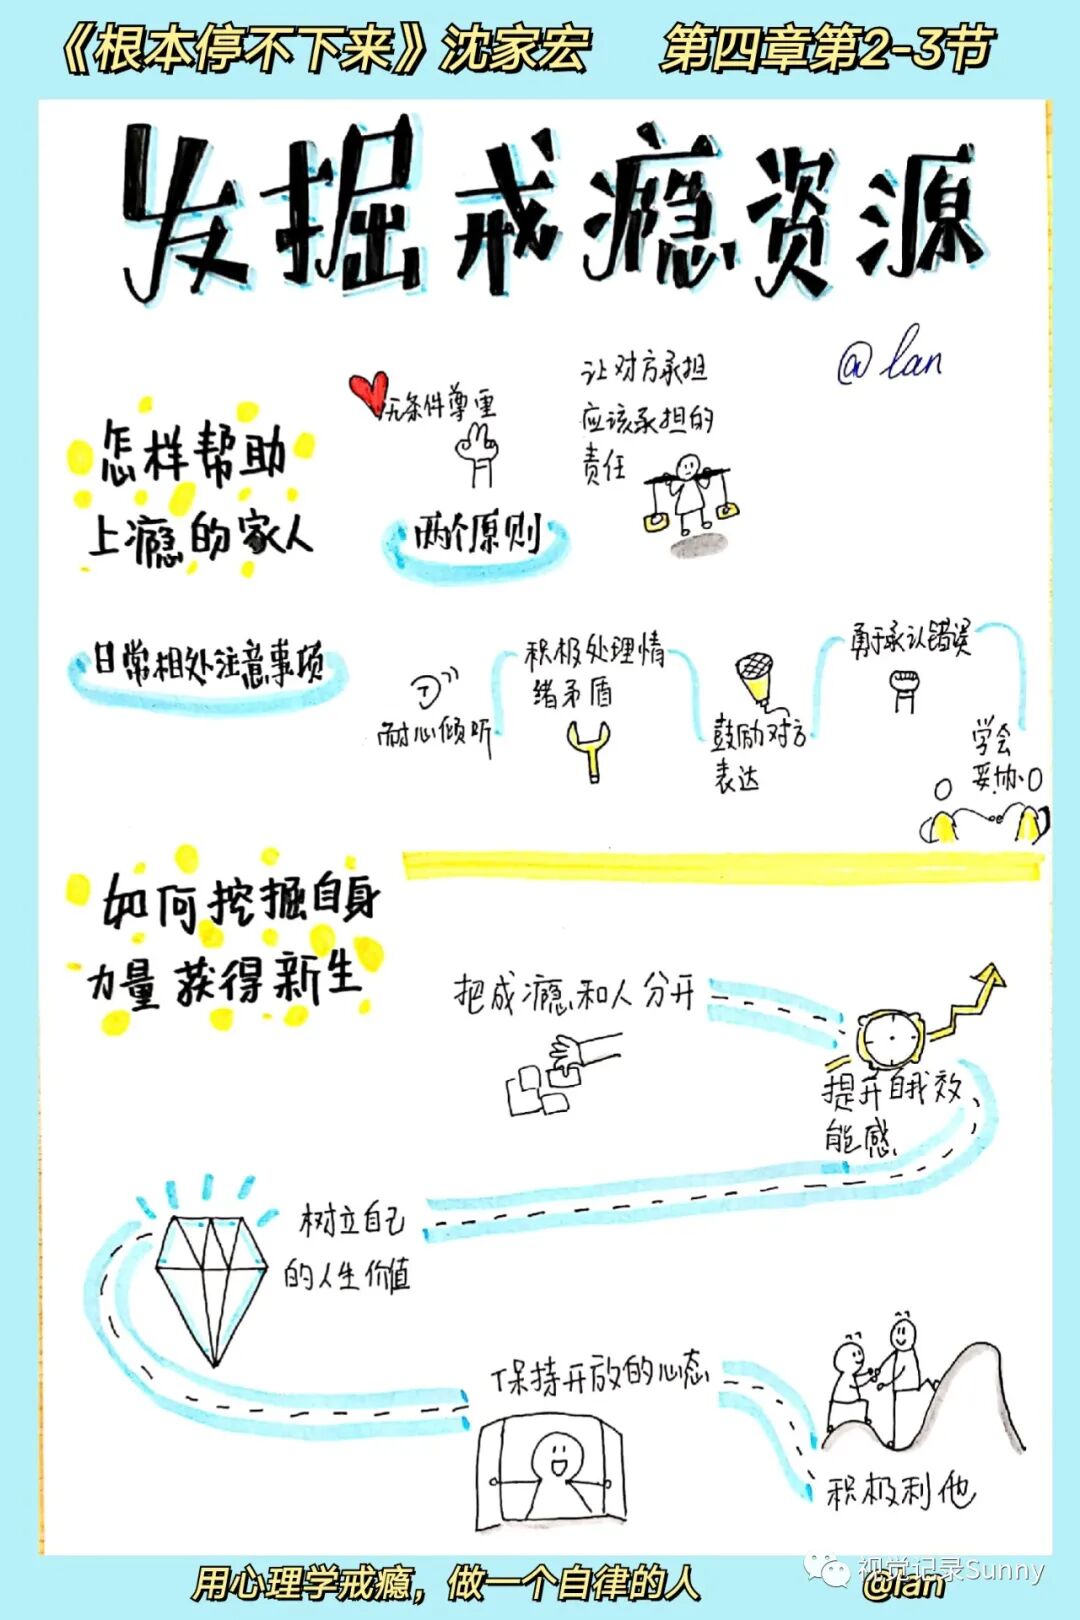 《根本停不下来》沈家宏 第四章第2-3节
发掘戒瘾资源
@lan
怎样帮助
上瘾的家人
无条件尊重
两个原则
让对方承担
应该承担的
责任
日常相处注意事项
耐心倾听
积极处理情
绪矛盾
鼓励对方
表达
勇于承认错误
学会
妥协
如何挖掘自身
力量获得新生
把成瘾和人分开
提升自我效
能感
树立自己
的人生价值
保持开放的心态
积极利他
用心理学戒瘾，做一个自律的人
@lan
视觉记录Sunny